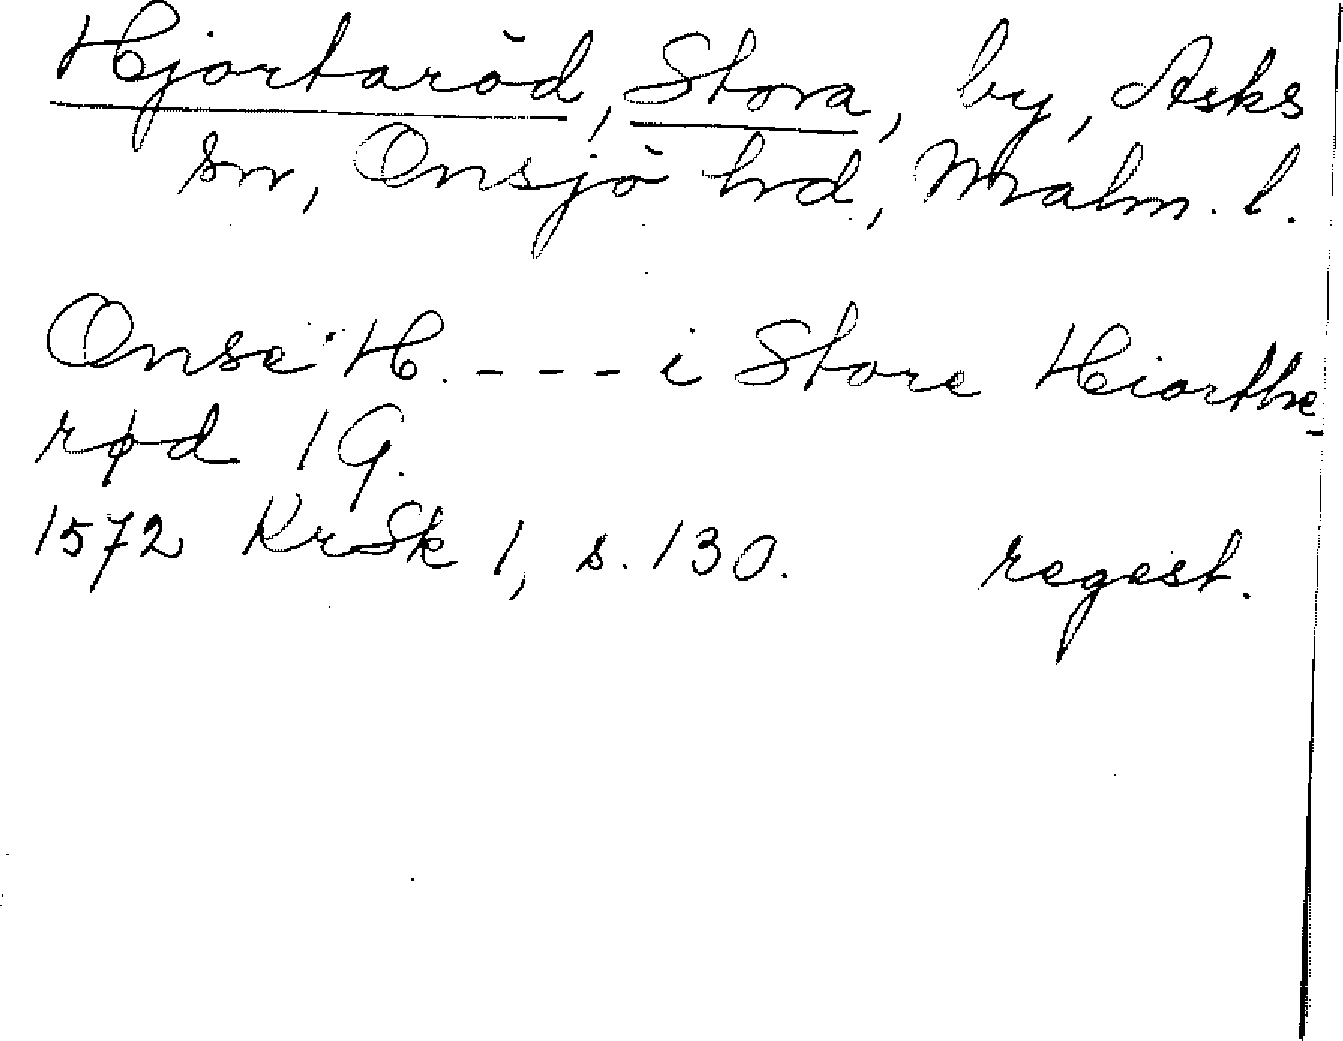 Hjortaröd, Stora, by, Asks
sn, Onsjö hd, Malm. l.
Onse H. - - - i Store Hiorthe-
rød 1 G.
1572 KrSk 1, s. 130. regest.